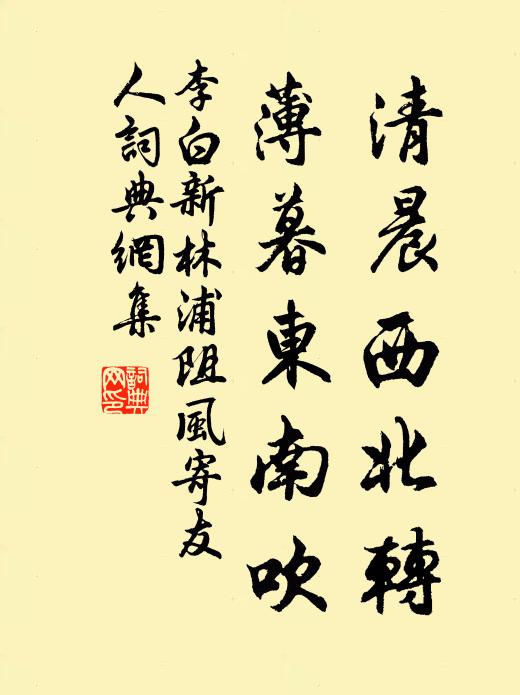 清晨西北轉
薄暮東南吹
李白新林浦阻風寄友
人詞典網集
詞典網印